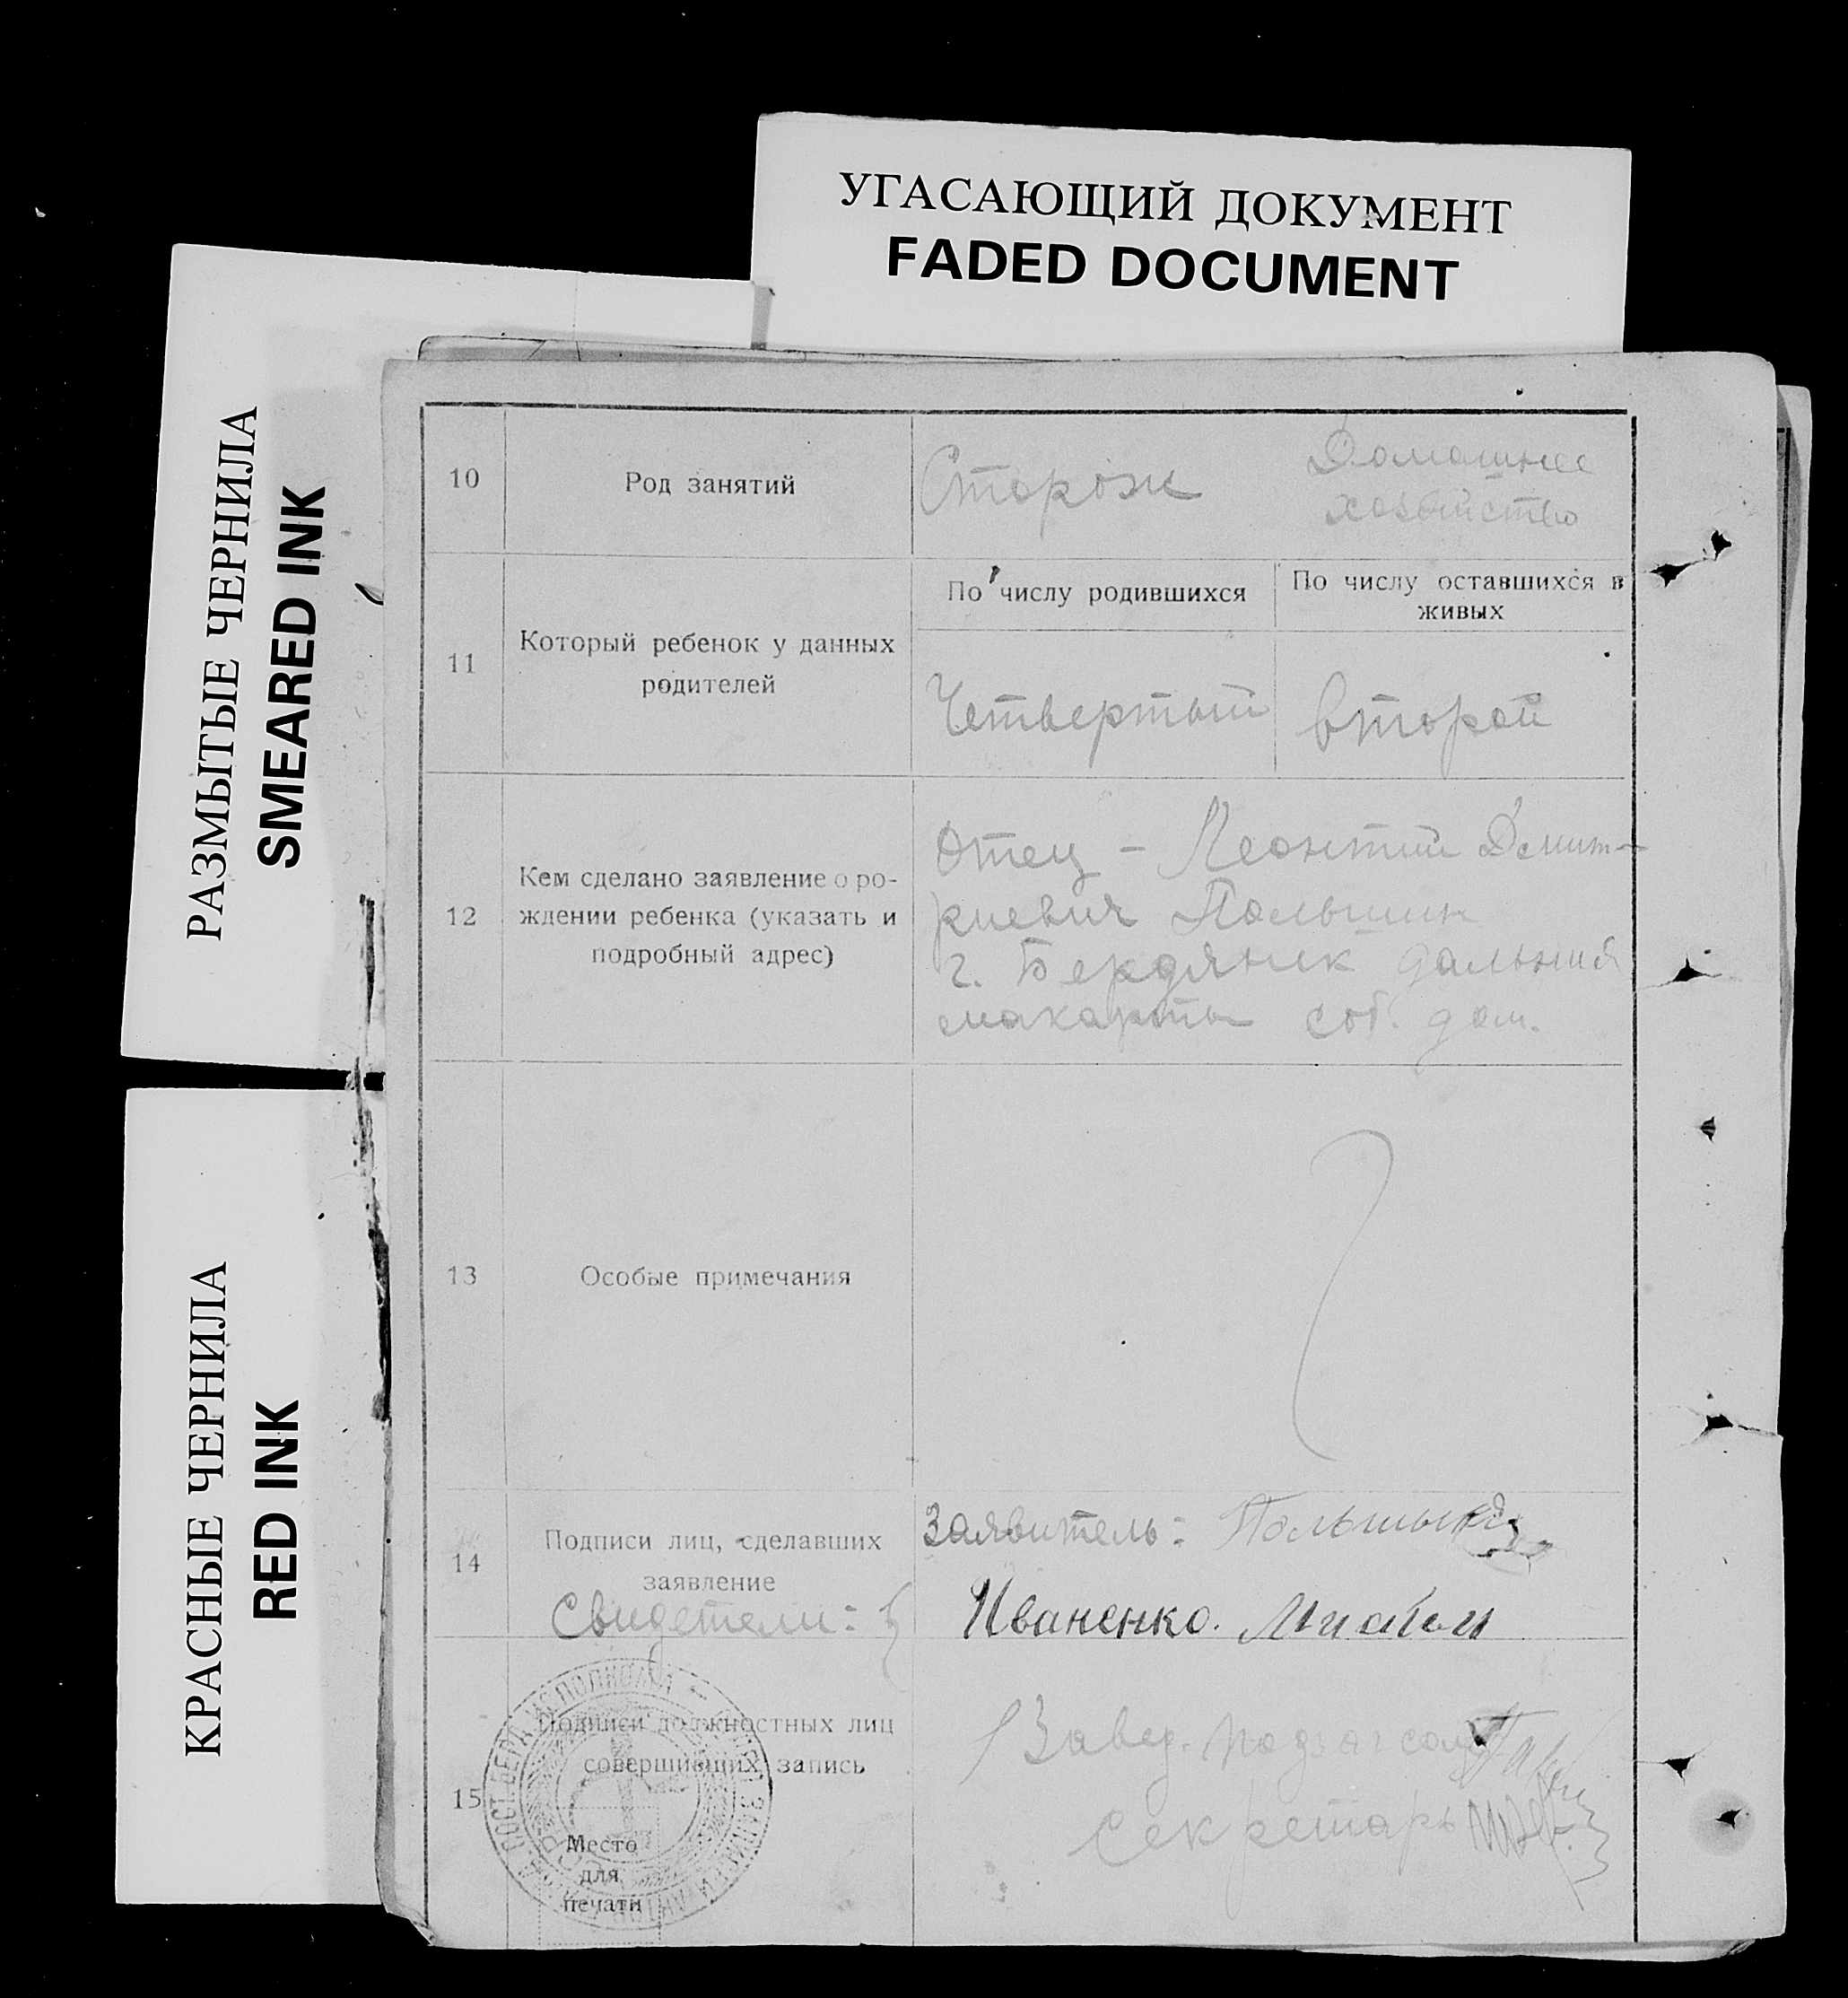 УГАСАЮЩИЙ ДОКУМЕНТ
FADED DOCUMENT
РАЗМЫТЫЕ ЧЕРНИЛА
SMEARED INK
КРАСНЫЕ ЧЕРНИЛА
RED INK
10
Род занятий
Сторож
Домашнее
хозяйство
11
Который ребенок у данных
родителей
По числу родившихся
По числу оставшихся в
живых
Четвертый
второй
12
Кем сделано заявление о ро-
ждении ребенка (указать и
подробный адрес)
Отец – Леонтий Дмит-
риевич Польшин
г. Бердянск дальния
макорты соб. дом.
13
Особые примечания
14
Подписи лиц, сделавших
заявление
Свидетели:
Заявитель: Польшын
Иваненко.
15
Подписи должностных лиц
совершивших запись
Место
для
печати
Завед. подзагсом
Секретарь